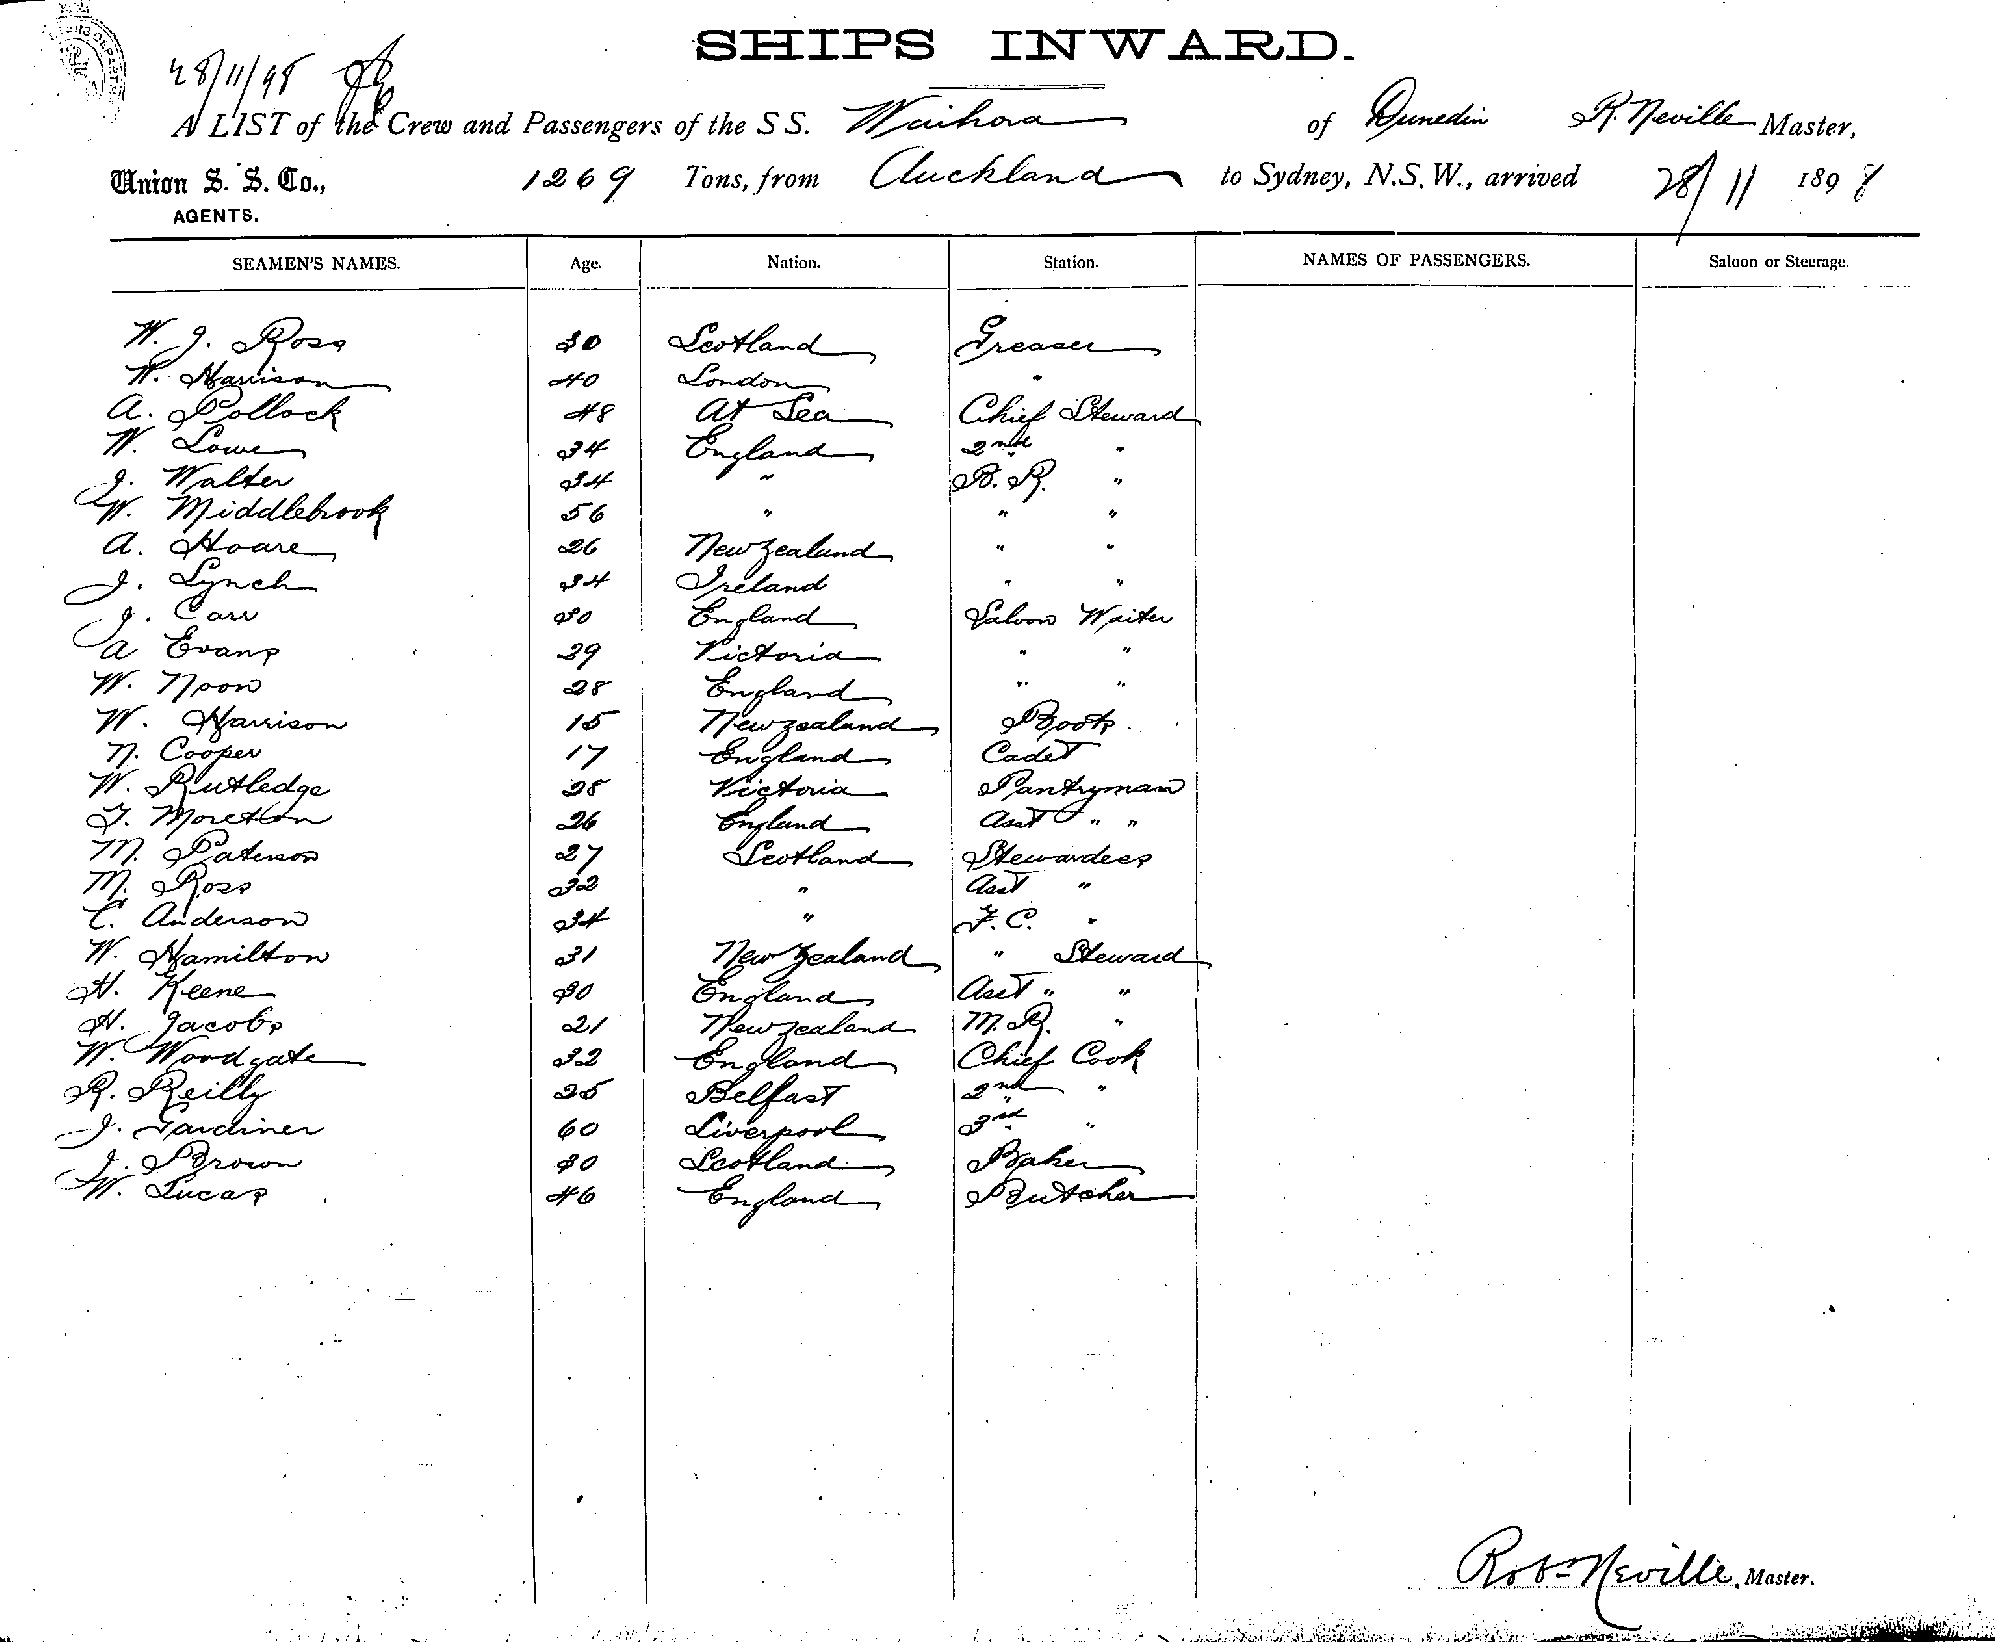 SHIPS INWARD.
28/11/98
A LIST of the Crew and Passengers of the S S. Waihora of Dunedin R. Neville Master,
Union S. S. Co., 1269 Tons, from Auckland to Sydney, N.S.W., arrived 28/11 1898
AGENTS.
SEAMEN'S NAMES. Age. Nation. Station. NAMES OF PASSENGERS. Saloon or Steerage.
W. J. Ross 30 Scotland Greaser
W. Harrison 40 London "
A. Pollock 48 At Sea Chief Steward
W. Lowe 34 England 2nd "
J. Walter 34 " B. R. "
W. Middlebrook 56 " " "
A. Hoare 26 New Zealand " "
J. Lynch 34 Ireland " "
J. Carr 30 England Saloon Waiter
A Evans 29 Victoria " "
W. Noon 28 England " "
W. Harrison 15 New Zealand Boots.
N. Cooper 17 England Cadet
W. Rutledge 28 Victoria Pantryman
T. Moreton 26 England Asst " "
M. Paterson 27 Scotland Stewardess
M. Ross 32 " Asst "
C. Anderson 34 " F. C. "
W. Hamilton 31 New Zealand " Steward
H. Keene 30 England Asst " "
H. Jacobs 21 New Zealand M. R. "
W. Woodgate 32 England Chief Cook
R. Reilly 25 Belfast 2nd "
J. Gardiner 60 Liverpool 3rd "
J. Brown 30 Scotland Baker
W. Lucas 46 England Butcher
Robt Neville, Master.